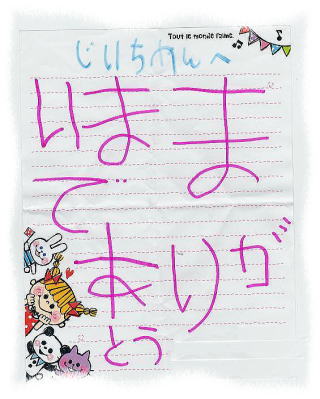 Tout le monde l'aime.
じいちゃんへ
いまま
で
ありが
とう